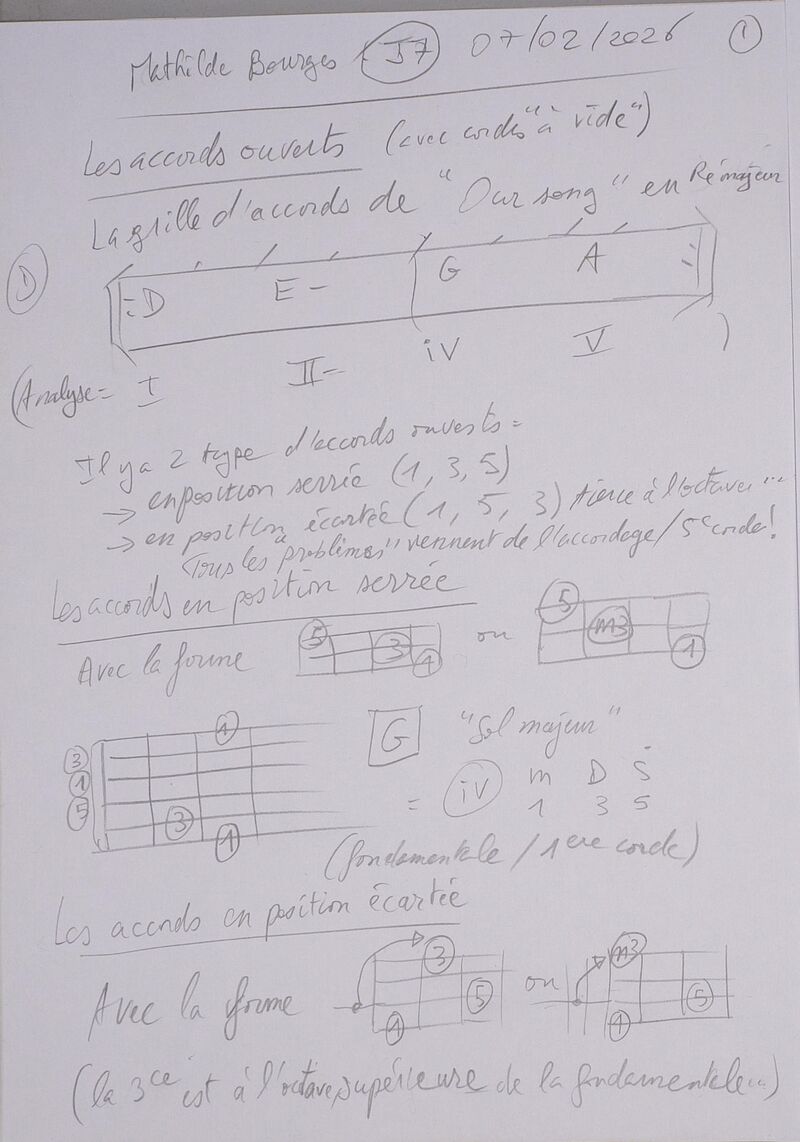 Mathilde Bourges J7 07/02/2026 1
Les accords ouverts (avec cordes "à vide")
La grille d'accords de "Our song" en Ré majeur
D
D E- G A
(Analyse = I II- iV V )
Il y a 2 type d'accords ouverts =
→ en position serrée (1, 3, 5)
→ en position écartée (1, 5, 3) tierce à l'octave...
Tous les "problèmes" viennent de l'accordage / 5e corde!
Les accords en position serrée
Avec la forme 5 3 1 ou 5 m3 1
1
3
1
5
3
1
G "Sol majeur"
= iV m D S
1 3 5
(fondamentale / 1ere corde)
Les accords en position écartée
Avec la forme 3 5 1 ou m3 5 1
(la 3ce est à l'octave supérieure de la fondamentale...)